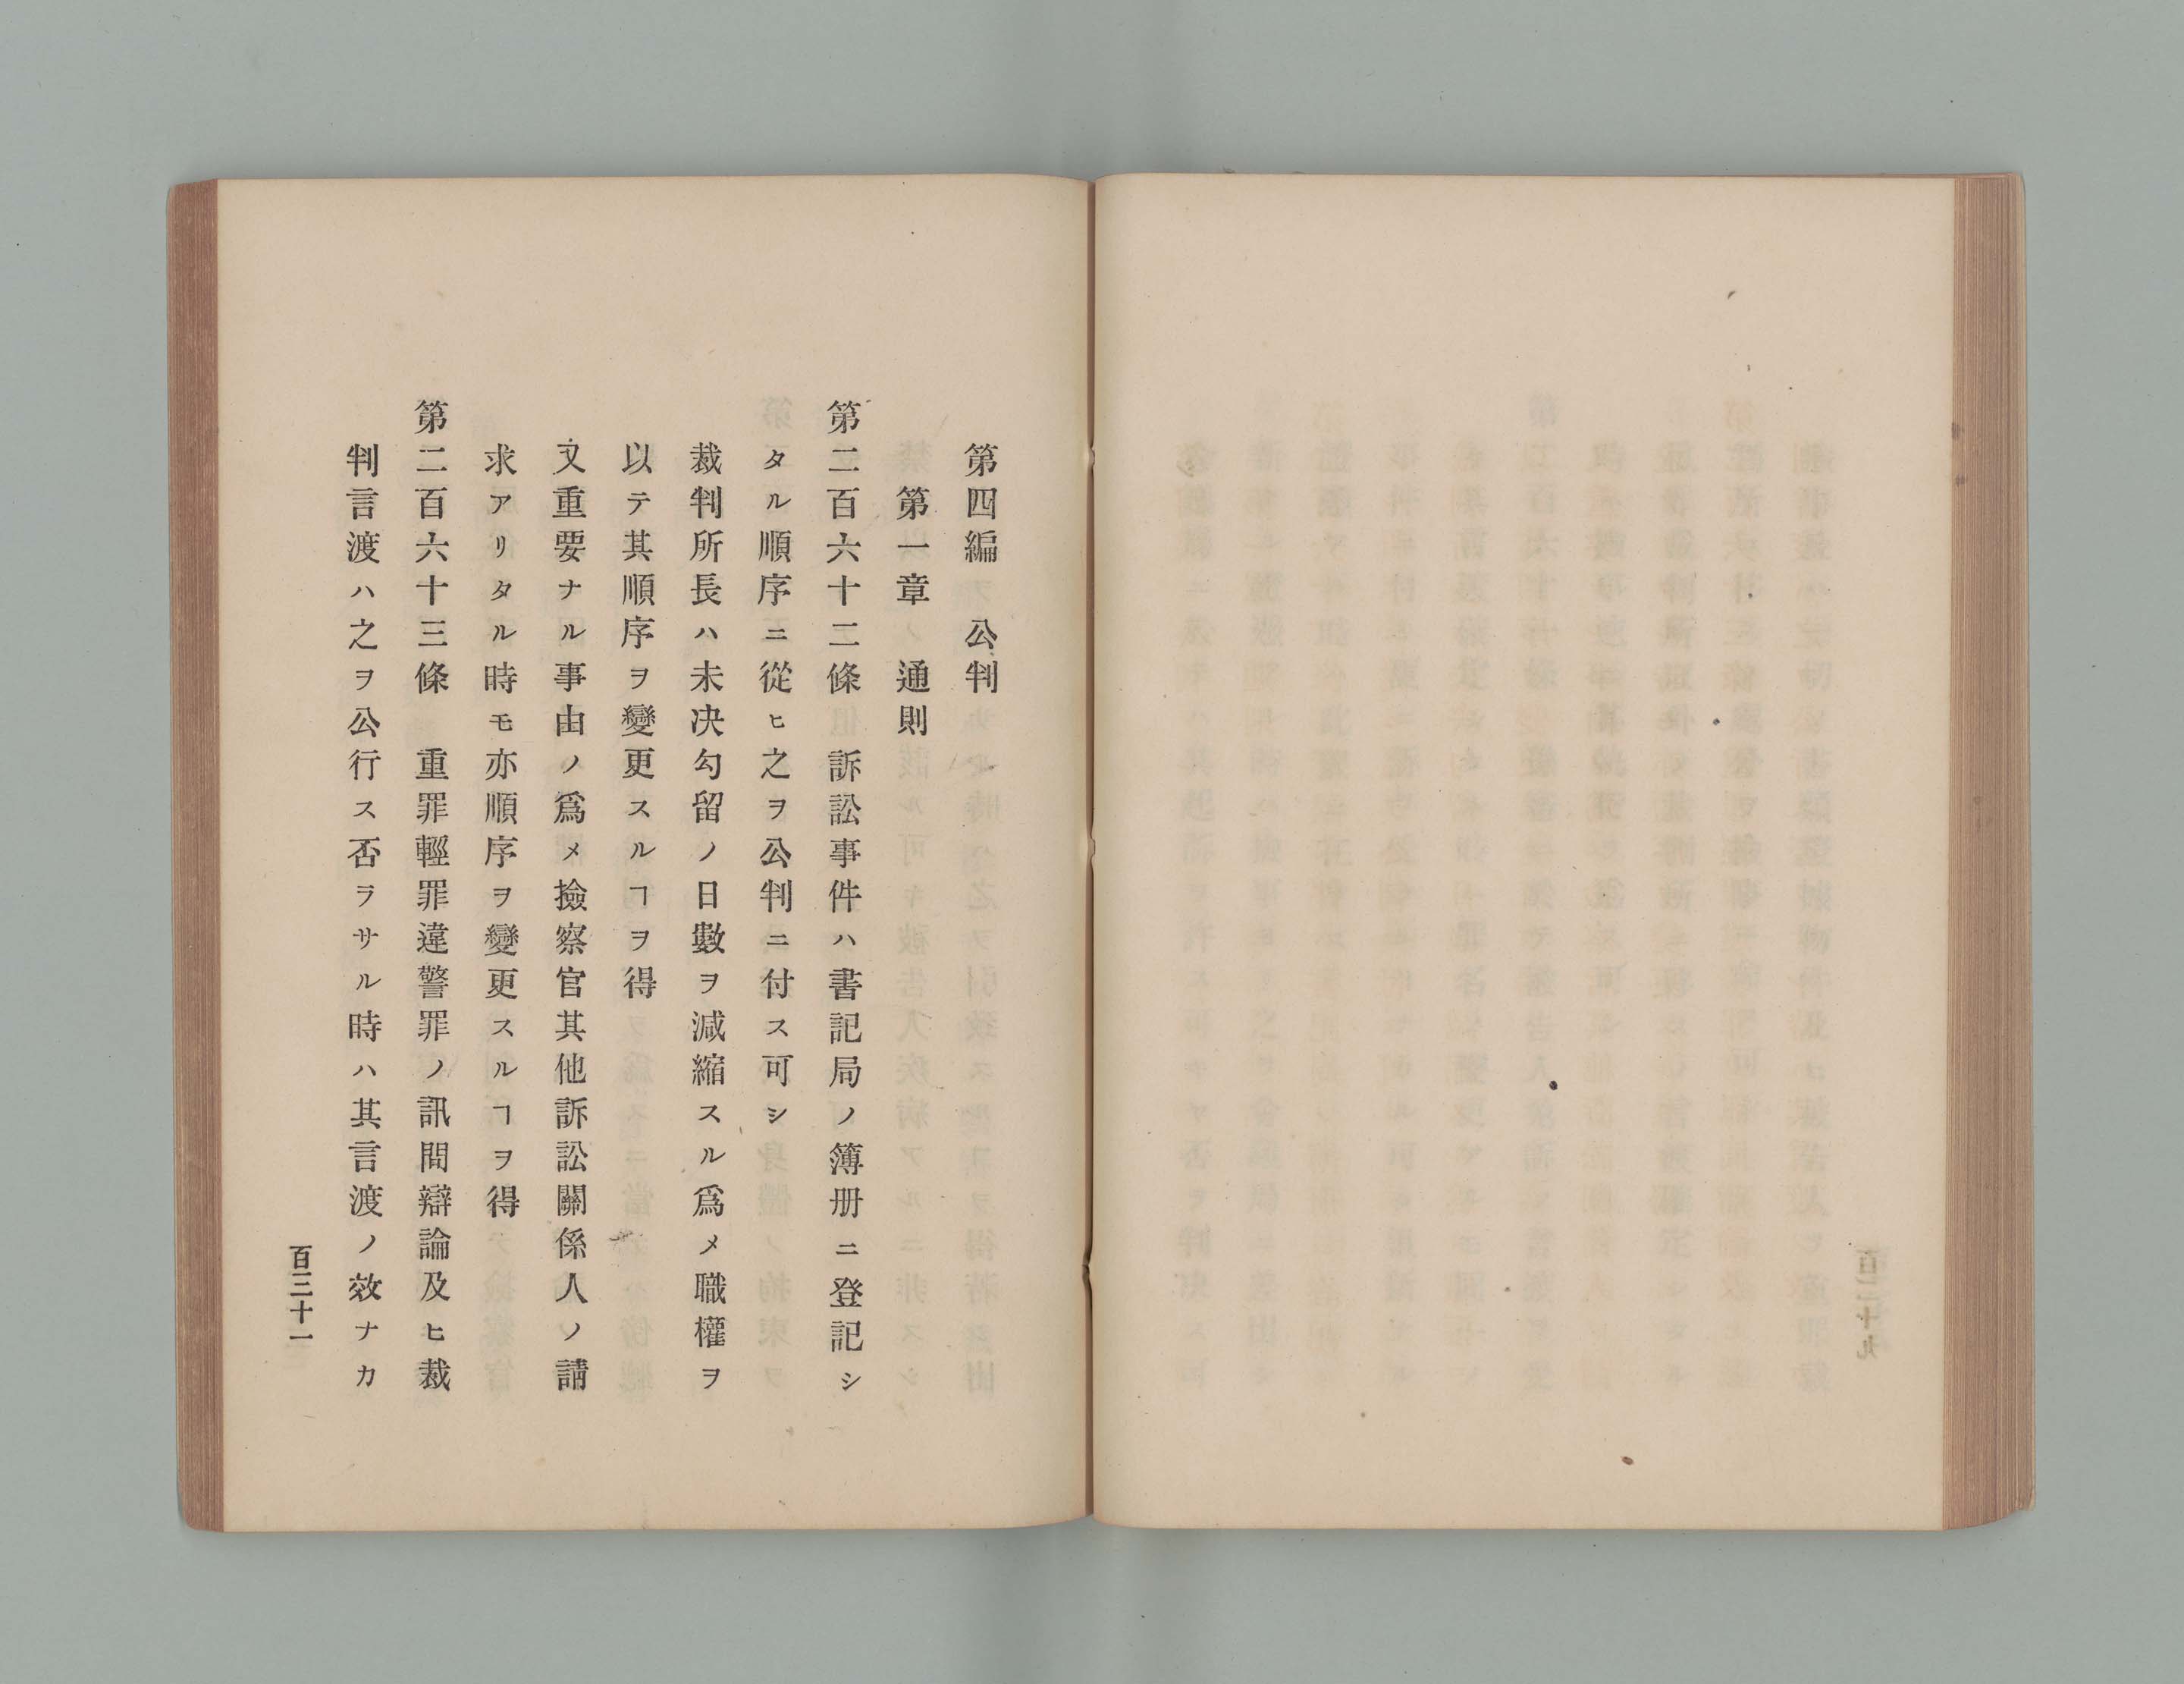 第四編　公判
第一章　通則
第二百六十二條　訴訟事件ハ書記局ノ簿册ニ登記シ
タル順序ニ從ヒ之ヲ公判ニ付ス可シ
裁判所長ハ未决勾留ノ日數ヲ減縮スル爲メ職權ヲ
以テ其順序ヲ變更スルヿヲ得
又重要ナル事由ノ爲メ撿察官其他訴訟關係人ノ請
求アリタル時モ亦順序ヲ變更スルヿヲ得
第二百六十三條　重罪輕罪違警罪ノ訊問辯論及ヒ裁
判言渡ハ之ヲ公行ス否ラサル時ハ其言渡ノ效ナカ
百三十一